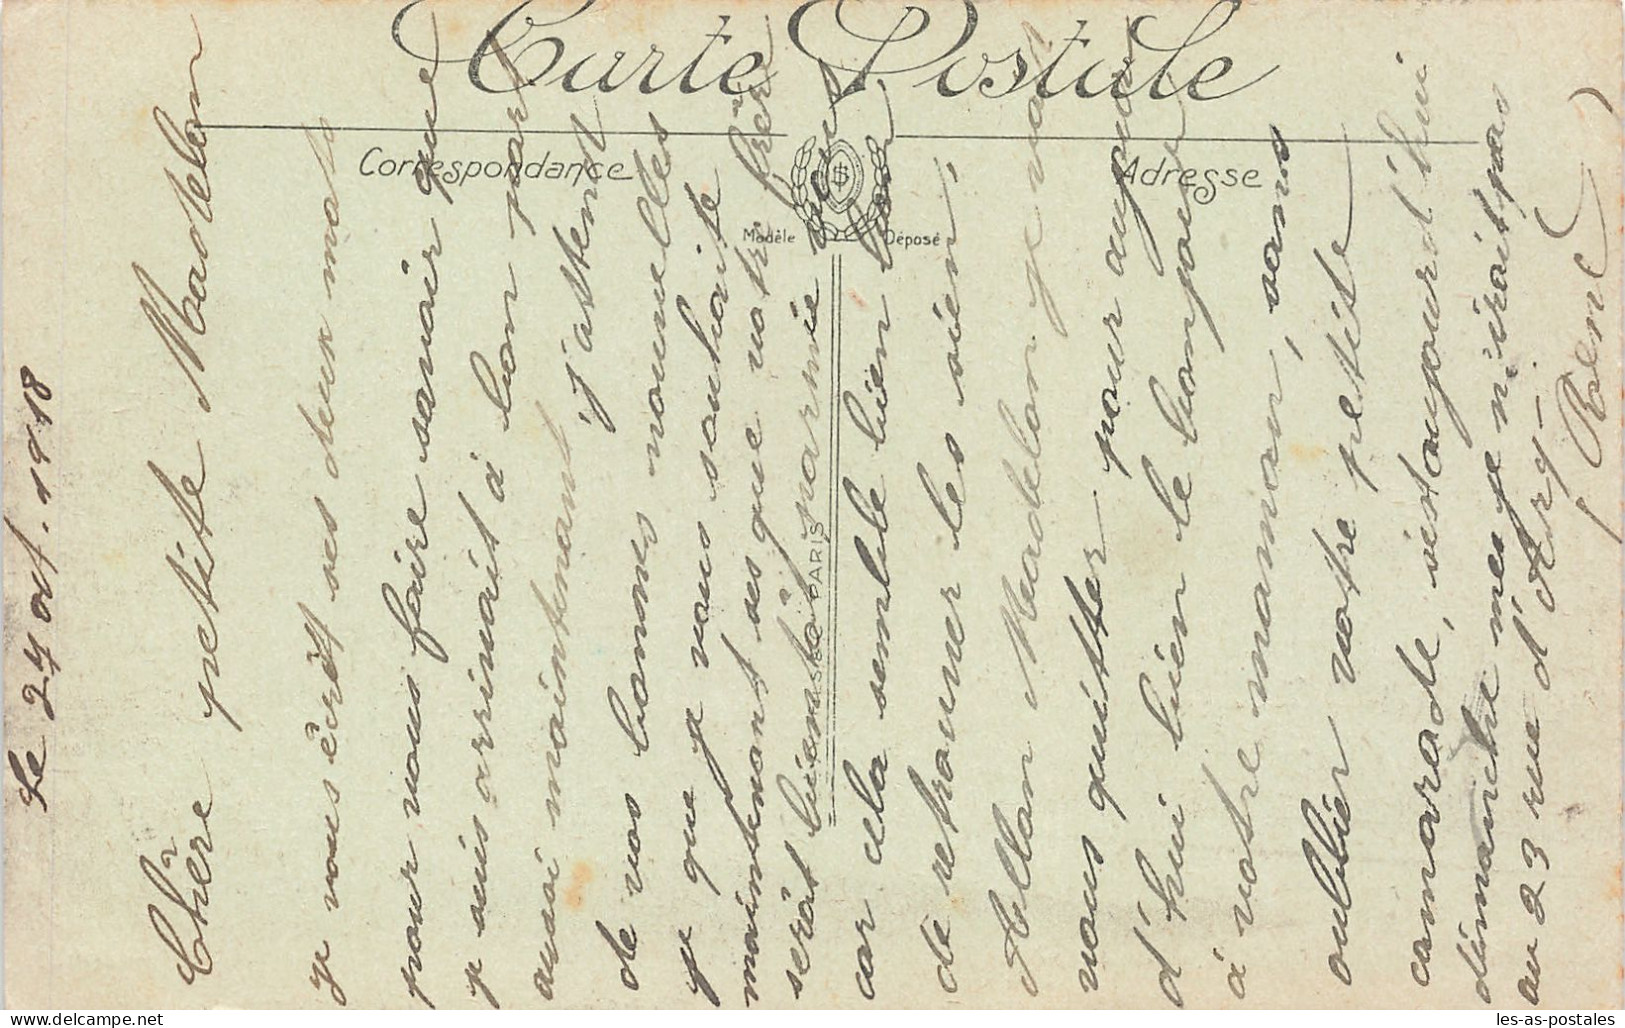 Carte Postale
Correspondance
Adresse
Modèle Déposé
PARIS
Le 24 oct. 1918
Chère petite Madelon
je vous ècrit ses deux mots
pour vous faire savoir que
je suis arrivait à bon port
aussi maintenant j'attend
de vos bonnes nouvelles
je que je vous souhaite
maintenant ses que votre frèr
serait bientôt parmie vous
car cela semble bien bon
de retrouver les sien,
Allon Madelon je vai
vous quitter pour aujour
d'hui bien le bonjour
à votre maman, sans
oublier votre petite
camarade, sestaujourd'hui
dimanche mes je n'irait pas
au 23 rue d'Arg-
René
les-as-postales